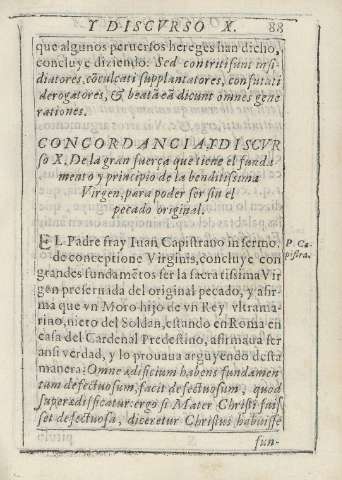 Y DISCVRSO X. 88
que algunos peruersos hereges han dicho,
concluye diziendo: Sed contriti sunt insi-
diatores, cõculcati supplantatores, confutati
derogatores, & beatã eã dicunt omnes gene
rationes.
CONCORDANCIA Y DISCVR
so X. De la gran fuerça que tiene el funda
mento y principio de la benditissima
Virgen, para poder ser sin el
pecado original.
EL Padre fray Iuan Capistrano in sermo.
P. Ca-
pistra.
de conceptione Virginis, concluye con
grandes fundamẽtos ser la sacratissima Vir
gen preseruada del original pecado, y afir
ma que vn Moro hijo de vn Rey vltrama
rino, nieto del Soldan, estando en Roma en
casa del Cardenal Predestino, afirmaua ser
ansi verdad, y lo prouaua arguyendo desta
manera: Omne ædificium habens fundamen
tum defectuosum, facit defectuosum, quod
superædificatur: ergo si Mater Christi fuis
set defectuosa, diceretur Christus habuisse
fun-